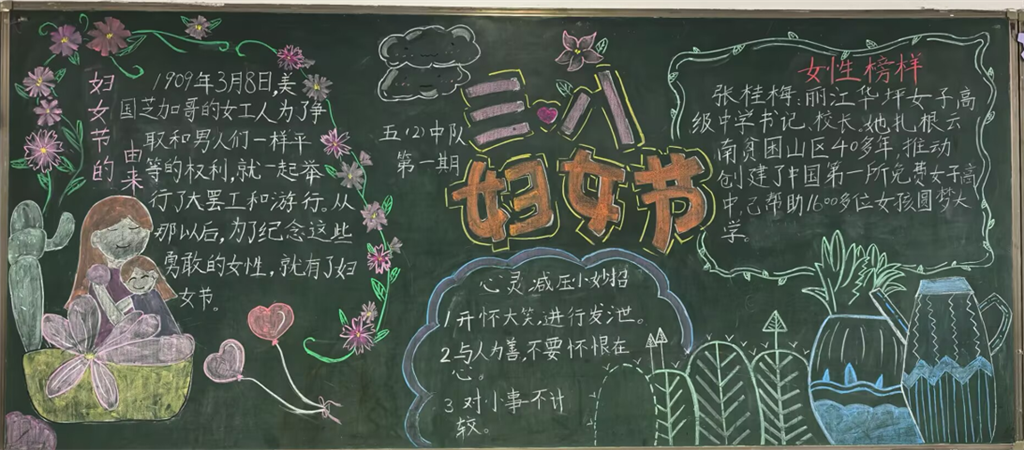 妇女节的
由来
1909年3月8日,美
国芝加哥的女工人为了争
取和男人们一样平
等的权利,就一起举
行了大罢工和游行。从
那以后,为了纪念这些
勇敢的女性,就有了妇
女节。
五(2)中队
第一期
三八
妇女节
心灵减压小妙招
1开怀大笑,进行发泄。
2与人为善,不要怀恨在
心。
3对小事不计
较。
女性榜样
张桂梅:丽江华坪女子高
级中学书记、校长,她扎根云
南贫困山区40多年,推动
创建了中国第一所免费女子高
中,已帮助1600多位女孩圆梦大
学。